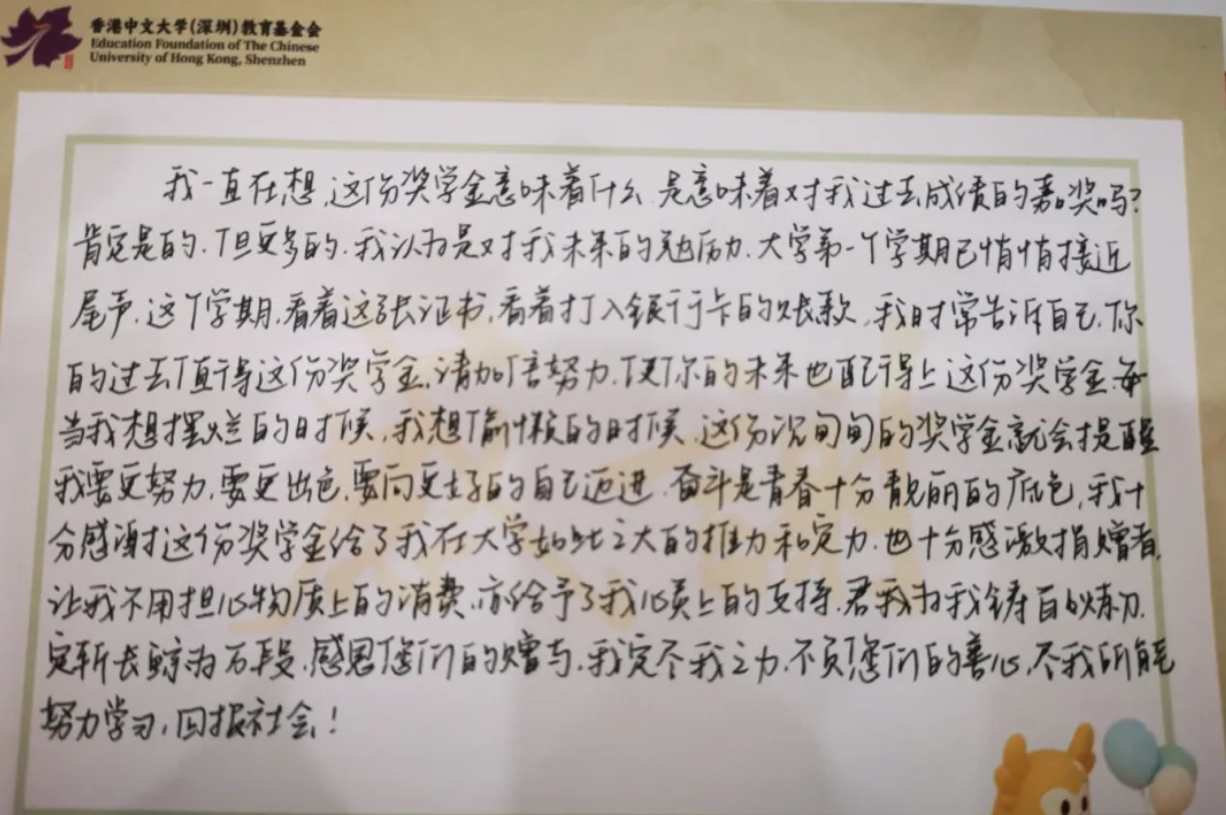 香港中文大学(深圳)教育基金会
Education Foundation of The Chinese
University of Hong Kong, Shenzhen
我一直在想,这份奖学金意味着什么,是意味着对我过去成绩的嘉奖吗?
肯定是的,但更多的,我认为是对我未来的勉励力.大学第一个学期已悄悄接近
尾声,这个学期,看着这张证书,看着打入银行卡的账款,我时常告诉自己,你
的过去值得这份奖学金,请加倍努力,使你的未来也配得上这份奖学金.每
当我想摆烂的时候,我想偷懒的时候,这份沉甸甸的奖学金就会提醒
我要更努力,要更出色,要向更好的自己迈进.奋斗是青春十分靓丽的底色,我十
分感谢这份奖学金给了我在大学如此之大的推力和定力.也十分感激捐赠者,
让我不用担心物质上的消费,亦给予了我心灵上的支持.君我为我铸百炼刀,
定斩长鲸为万段.感恩您们的赠与,我定尽我之力,不负您们的善心,尽我所能
努力学习,回报社会!